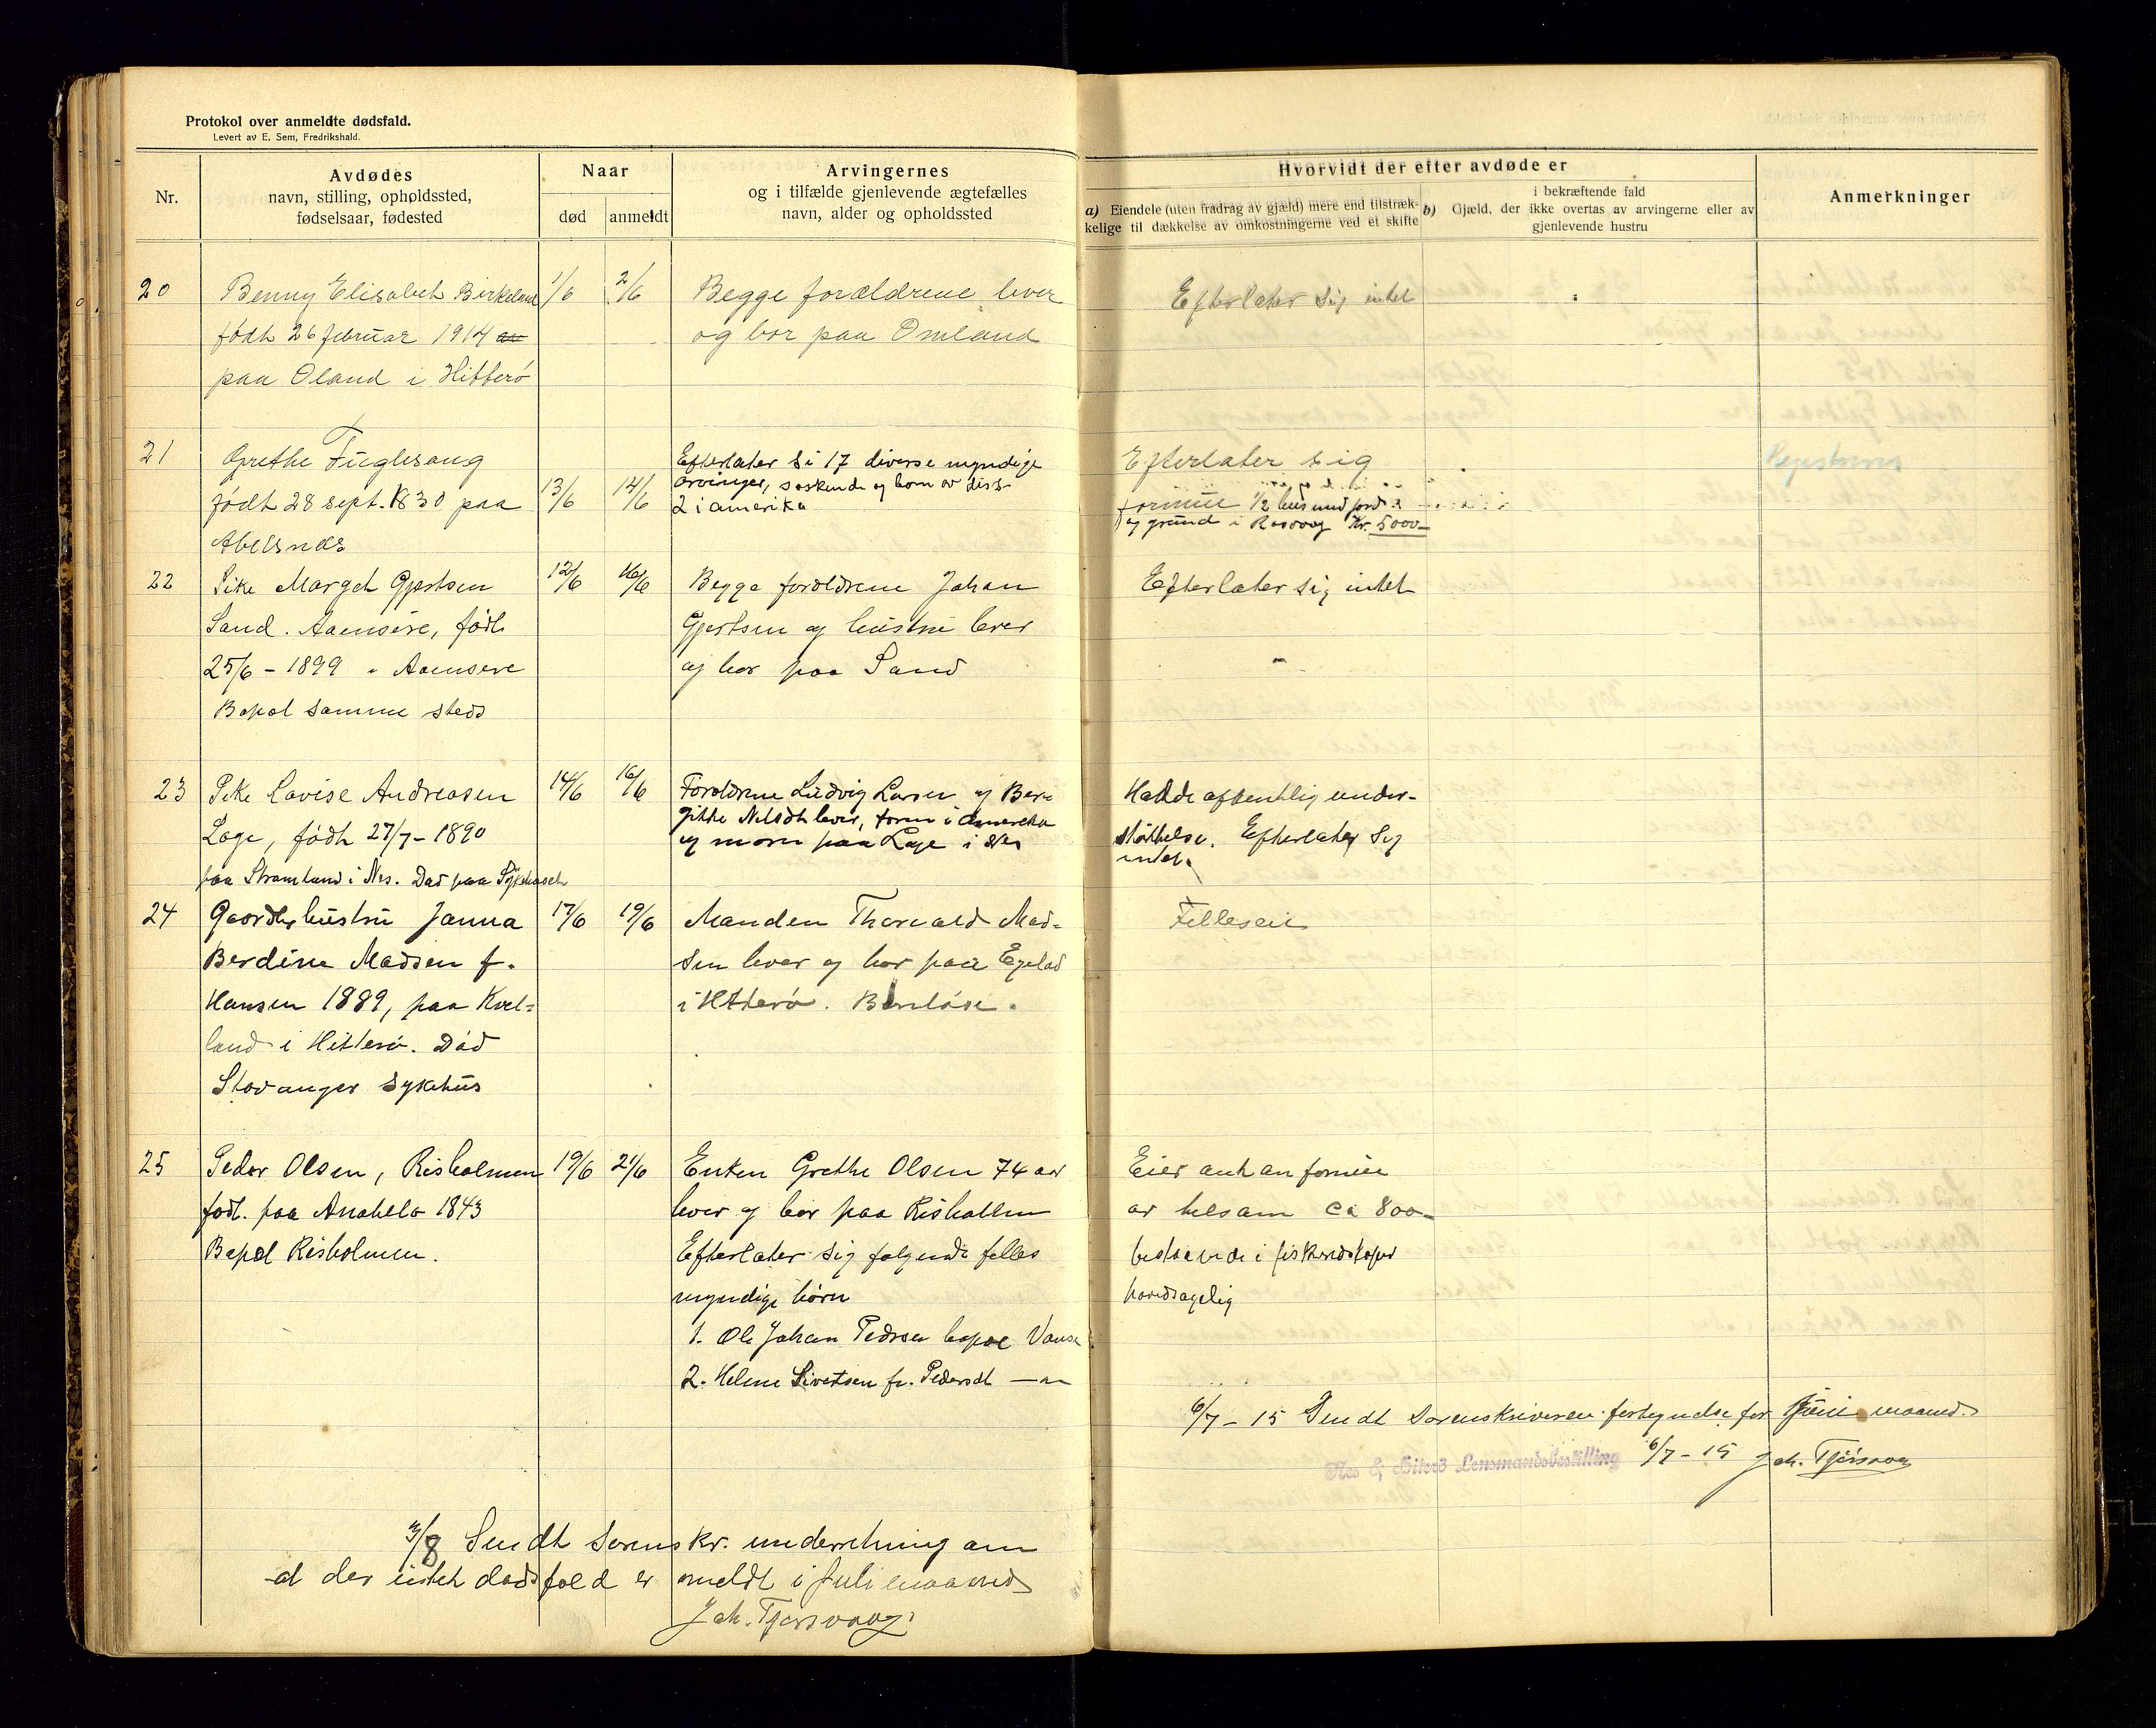 Protokol over anmeldte dødsfald.
Levert av E. Sem, Fredrikshald.
Nr.
Avdødes
navn, stilling, opholdssted,
fødselsaar, fødested
Naar
død
anmeldt
Arvingernes
og i tilfælde gjenlevende ægtefælles
navn, alder og opholdssted
Hvorvidt der efter avdøde er
a) Eiendele (uten fradrag av gjæld) mere end tilstræk-
kelige til dækkelse av omkostningerne ved et skifte
i bekræftende fald
b) Gjæld, der ikke overtas av arvingerne eller av
gjenlevende hustru
Anmerkninger
20
Benny Elisabet Birkeland
født 26 februar 1914
paa Øland i Hitterø
1/6
2/6
Begge forældrene lever
og bor paa Omland
Efterlater sig intet
21
Grethe Fuglesang
født 28 sept. 1830 paa
Abelsnes
13/6
14/6
Efterlater si 17 diverse myndige
arvinger, søskende og born av diss-
2 i amerika
Efterlater sig
formue 1/2 hus med jord
og grund i Rasvaag Kr. 5000-
Registreres
22
Pike Marget Gjertsen
Sand. Aaensire, født
25/6 - 1899 - Aaensire
Bopel samme steds
12/6
16/6
Begge foreldrene Johan
Gjertsen og hustru lever
og bor paa Sand
Efterlater sig intet
23
Pike Lovise Andreasen
Loge, født 27/7 - 1890
paa Stromland i Nes. Død paa Sykehuset
14/6
16/6
Foreldrene Ludvig Larsen og Ber-
gitte Nilsdt lever, faren i Amerika
og moren paa Loge i Nes
Hadde offentlig under-
støttelse. Efterlater sig
intet.
24
Gaardbr hustru Janna
Berdine Madsen f.
Hansen 1889, paa Kvel-
land i Hitterø. Død
Stavanger sykehus
17/6
19/6
Manden Thorvald Mad-
sen lever og bor paa Egeland
i Hitterø. Barnløse.
Felleseie
25
Peder Olsen, Risholmen
født. paa Anabelø 1843
Bopel Risholmen.
19/6
21/6
Enken Grethe Olsen 74 aar
lever og bor paa Risholmen
Efterlater sig følgende felles
myndige børn
1. Ole Johan Pedersen bopel Vanse
2. Helene Sivertsen fr. Pedersdt — " —
Eier antan formue
av tilsam ca 800-
bestaaende i fiskeredskaper
hovedsagelig
6/7 - 15 Sendt sorenskriveren fortegnelse for juni maaned.
Nes & Hiterö Lensmandsbestilling 6/7 - 15 Joh. Tjørsvaag
3/8 Sendt sorenskr. underretning om
at der intet dødsfald er meldt i juli maaned
Joh. Tjørsvaag.